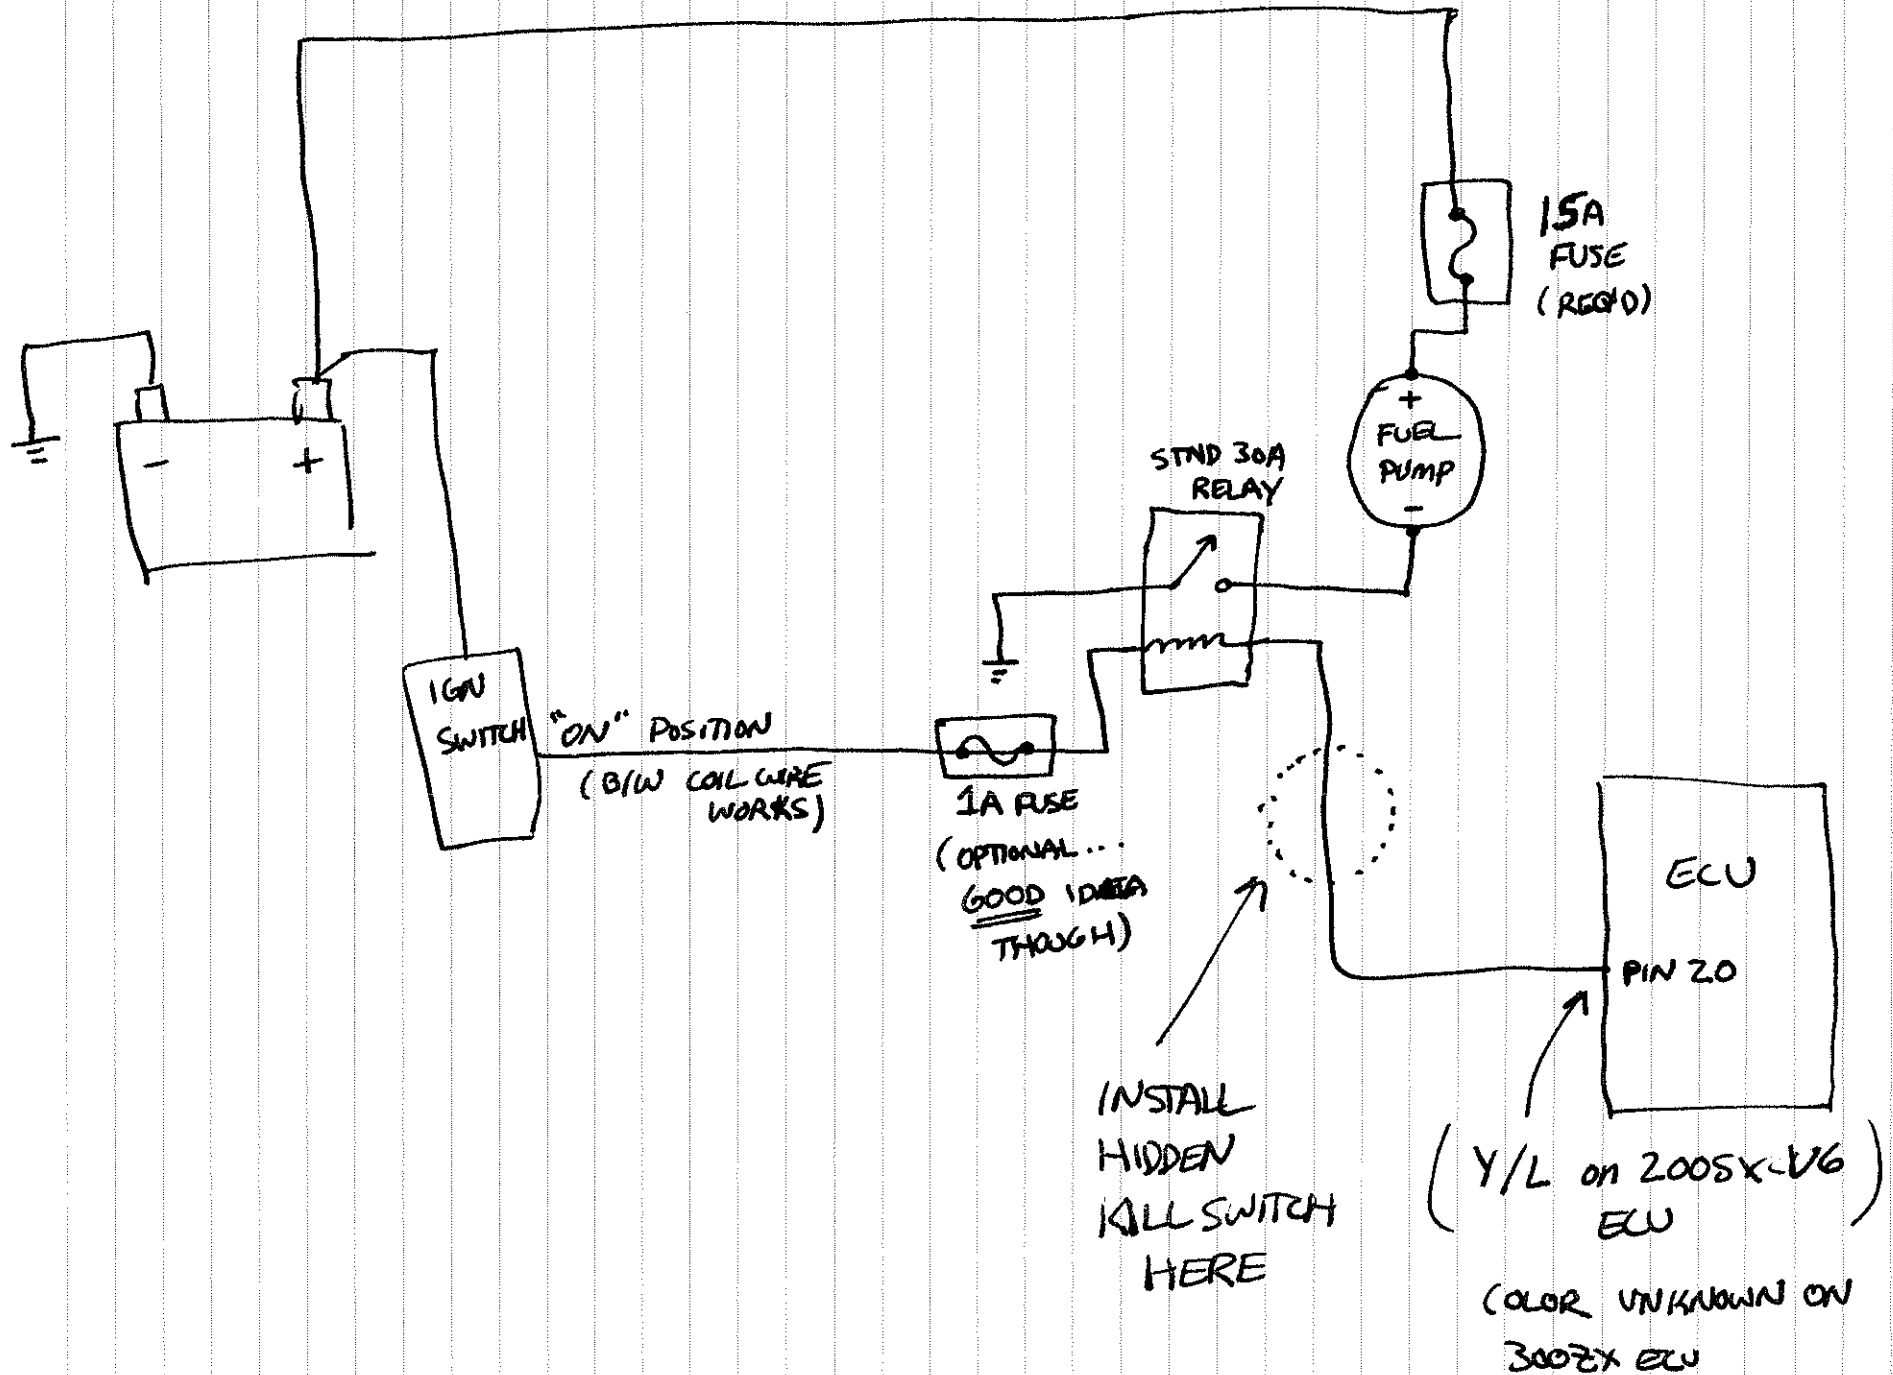 15A
FUSE
(REQ'D)
+
FUEL
PUMP
-
STND 30A
RELAY
- +
IGN
SWITCH
"ON" POSITION
(B/W COIL WIRE
WORKS)
1A FUSE
(OPTIONAL...
GOOD IDEA
THOUGH)
ECU
PIN 20
INSTALL
HIDDEN
KILL SWITCH
HERE
(Y/L on 200SX-V6)
ECU
(COLOR UNKNOWN ON
300ZX ECU